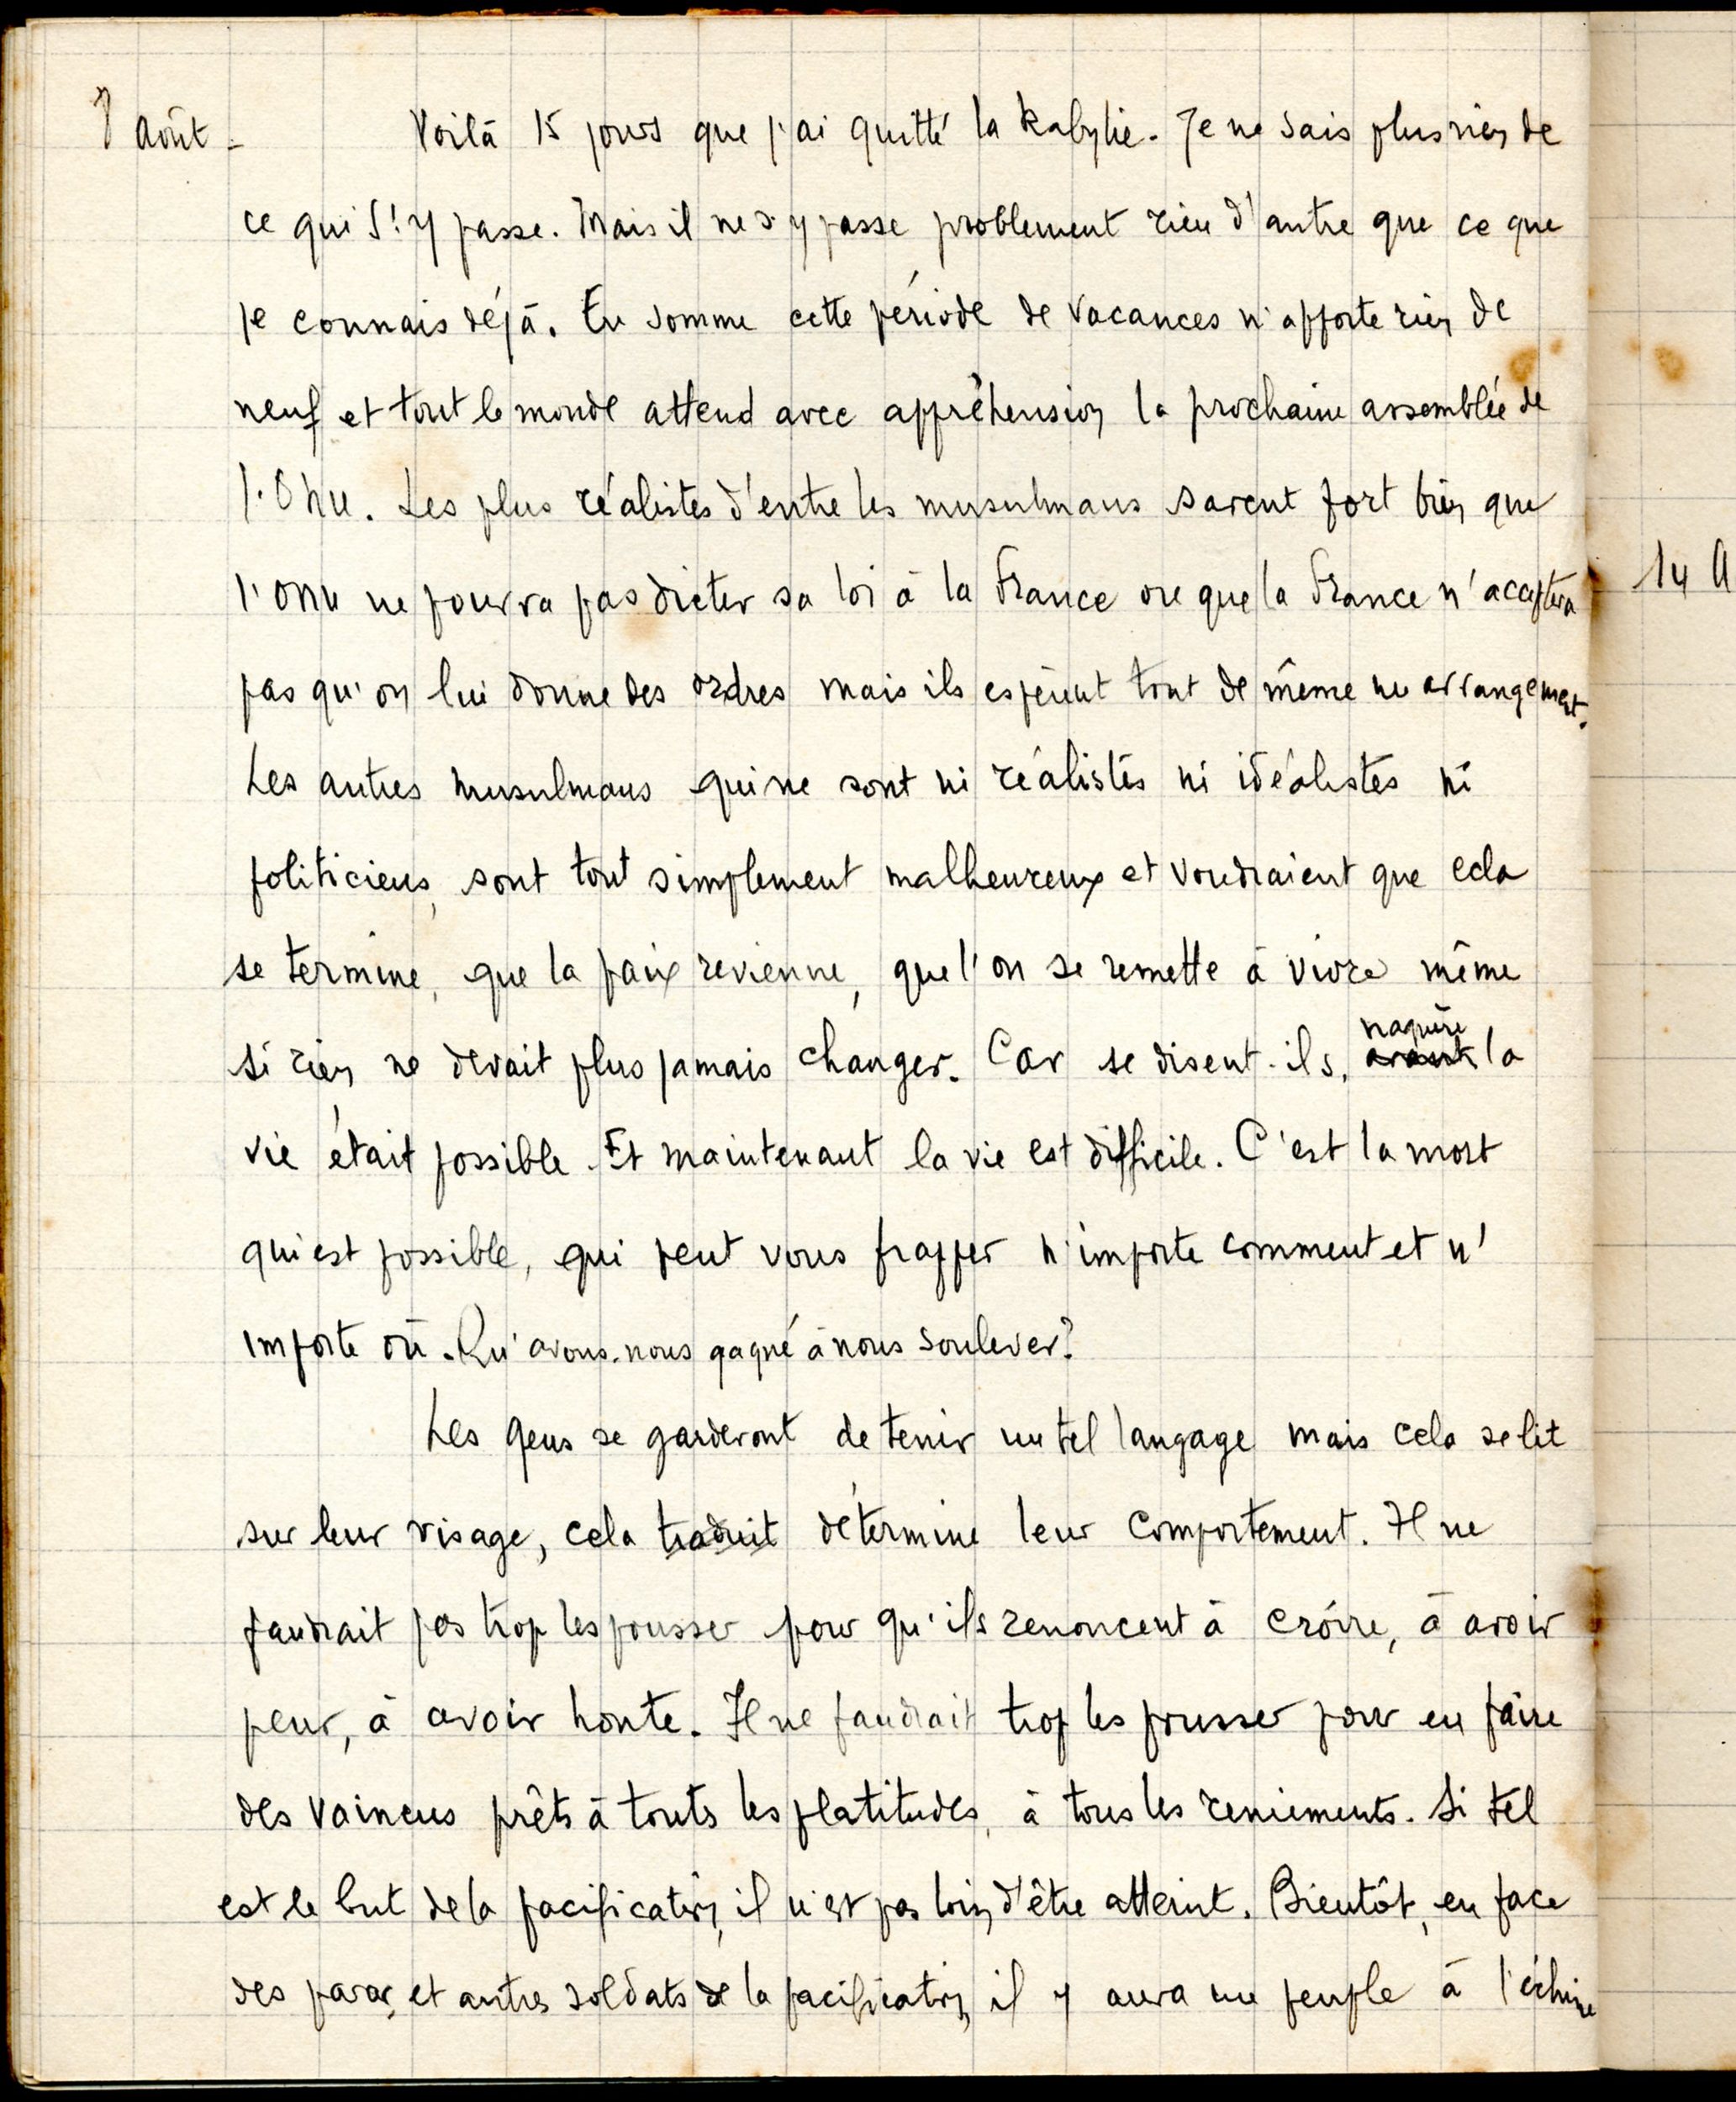 8 Août - Voilà 15 jours que j'ai quitté la Kabylie. Je ne sais plus rien de
ce qui s'y passe. Mais il ne s'y passe problement rien d'autre que ce que
je connais déjà. En somme cette période de vacances n'apporte rien de
neuf et tout le monde attend avec appréhension la prochaine assemblée de
l'Onu. Les plus réalistes d'entre les musulmans savent fort bien que
l'onu ne pourra pas dicter sa loi à la France ou que la France n'acceptera
pas qu'on lui donne des ordres mais ils espèrent tout de même un arrangement.
Les autres musulmans qui ne sont ni réalistes ni idéalistes ni
politiciens, sont tout simplement malheureux et voudraient que cela
se termine, que la paix revienne, que l'on se remette à vivre même
si rien ne devait plus jamais changer. Car se disent-ils, avant naguère la
vie était possible. Et maintenant la vie est difficile. C'est la mort
qui est possible, qui peut vous frapper n'importe comment et n'
importe où. Qu'avons-nous gagné à nous soulever?
Les gens se garderont de tenir un tel langage mais cela se lit
sur leur visage, cela traduit détermine leur comportement. Il ne
faudrait pas trop les pousser pour qu'ils renoncent à croire, à avoir
peur, à avoir honte. Il ne faudrait trop les pousser pour en faire
des vaincus prêts à touts les platitudes, à tous les reniements. Si tel
est le but de la pacification, il n'est pas loin d'être atteint. Bientôt, en face
des paras, et autres soldats de la pacification, il y aura un peuple à l'échine
14 A